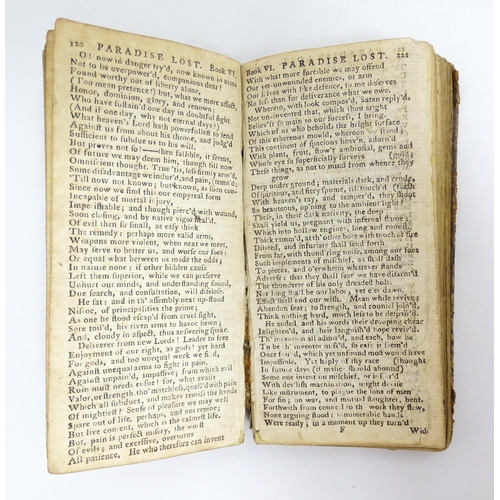 120 PARADISE LOST. Book VI.
O! now in danger try'd, now known in arms
Not to be overpow'd, companions dear!
Found worthy not of liberty alone,
(Too mean pretence!) but, what we more affect,
Honor, dominion, glory, and renown;
Who have sustain'd one day in doubtful fight
(And if one day, why not eternal days?)
What heaven's Lord hath powerfullest to send
Against us from about his throne, and judg'd
Sufficient to subdue us to his will,
But proves not so — then fallible, it seems,
Of future we may deem him, though till now
Omniscient thought. True 'tis, less firmly arm'd,
Some disadvantage we indur'd, and pain,
'Till now not known; but known, as soon con-
Since now we find this our empyreal form
Incapable of mortal injury,
Imperishable; and though pierc'd with wound,
Soon closing, and by native vigor heal'd.
Of evil then so small, as easy think
The remedy: perhaps more valid arms,
Weapons more violent, when next we meet,
May serve to better us, and worse our foes:
Or equal what between us made the odds;
In nature none: if other hidden cause
Left them superior, while we can preserve
Unhurt our minds, and understanding sound,
Due search, and consultation, will disclose.
He sat: and in th' assembly next up-stood
Nisroc, of principalities the prime;
As one he stood escap'd from cruel fight,
Sore toil'd, his riven arms to havoc hewn;
And, cloudy in aspect, thus answering spake.
Deliverer from new Lords! Leader to free
Enjoyment of our right, as gods! yet hard
For gods, and too unequal work we find,
Against unequal arms to fight in pain,
Against unpain'd, impassive; from which evil
Ruin must needs ensue! for, what avails
Valor, or strength, tho' matchless, quell'd with pain
Which all subdues, and makes remiss the hands
Of mightiest? Sense of pleasure we may well
Spare out of life, perhaps, and not repine;
But live content, which is the calmest life.
But, pain is perfect misery, the worst
Of evils; and excessive, overturns
All patience. He who therefore can invent
Book VI. PARADISE LOST. 121
With what more forcible we may offend
Our yet unwounded enemies, or arm
Our selves with like defence, to me deserves
No less than for deliverance what we owe.
Whereto, with look compos'd, Satan reply'd,
Not un-invented that, which thou aright
Believ'st so main to our success, I bring.
Which of us who beholds the bright surface
Of this ethereous mould, whereon we stand;
This continent of spacious heav'n, adorn'd
With plant, fruit, flow'r ambrosial, gems and
Whose eye so superficially surveys (gold;
These things, as not to mind from whence they
grow
Deep under ground; materials dark, and crude,
Of spiritous, and fiery spume, till touch'd (forth
With heaven's ray, and temper'd, they shoot
So beauteous, op'ning to the ambient light?
These, in their dark nativity, the deep
Shall yield us, pregnant with infernal flame;
Which into hollow engines, long and round,
Thick ramm'd, at th' other bore with touch of fire
Dilated, and infuriate shall send forth
From far, with thund'ring noise, among our foes
Such implements of mischief, as shall dash
To pieces, and o'erwhelm whatever stands
Adverse; that they shall fear we have disarm'd
The thunderer of his only dreaded bolt.
Nor long shall be our labor; yet e'er dawn,
Effect shall end our wish. Mean while revive;
Abandon fear; to strength, and counsel join'd,
Think nothing hard, much less to be despair'd.
He ended, and his words their drooping chear
Inlighten'd, and their languish'd hope reviv'd.
Th' invention all admir'd, and each, how he
To be th' inventor miss'd, so easy it seem'd
Once found, which yet unfound most would have
Impossible. Yet haply of thy race (thought
In future days (if malice should abound)
Some one intent on mischief, or inspir'd
With dev'lish machination, might devise
Like instrument, to plague the sons of men
For sin; on war, and mutual slaughter, bent.
Forthwith from council to th work they flew,
None arguing stood: innumerable hands
Were ready; in a moment up they turn'd
F Wide